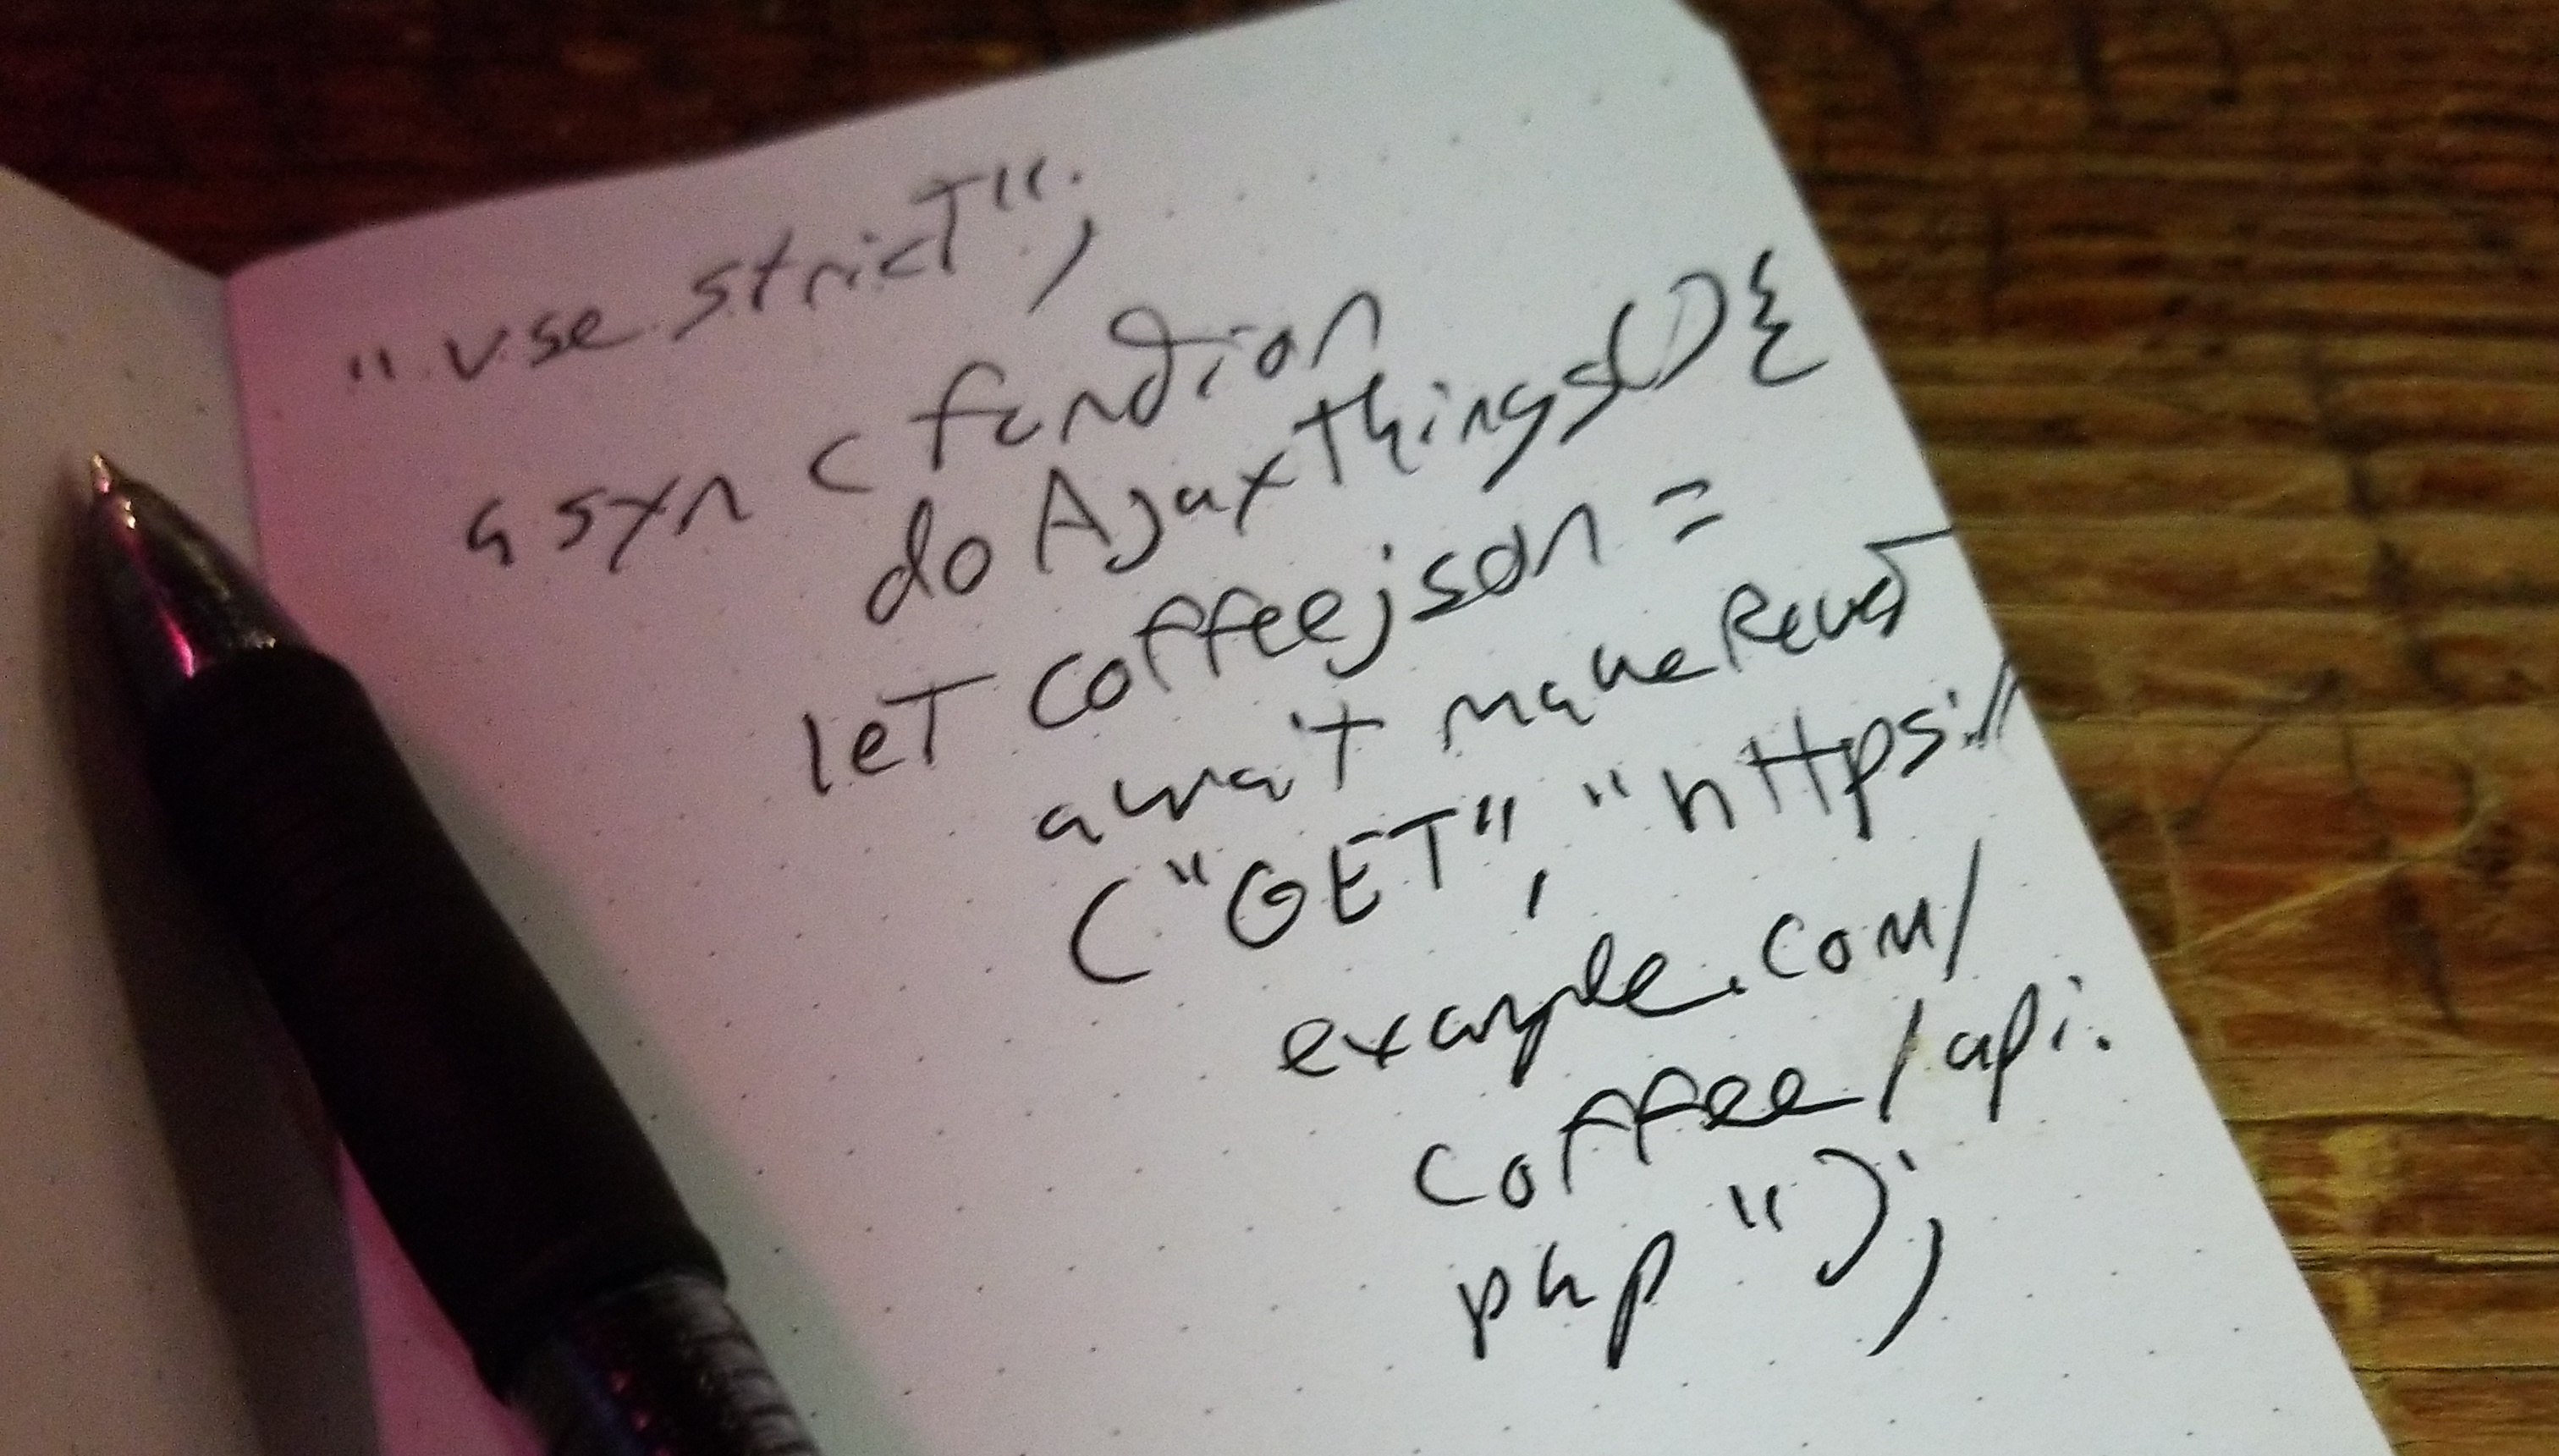 "use strict";
async function
doAjaxthings(){
let coffeejson =
await makeRequest
("GET", "https://
example.com/
coffee/api.
php");